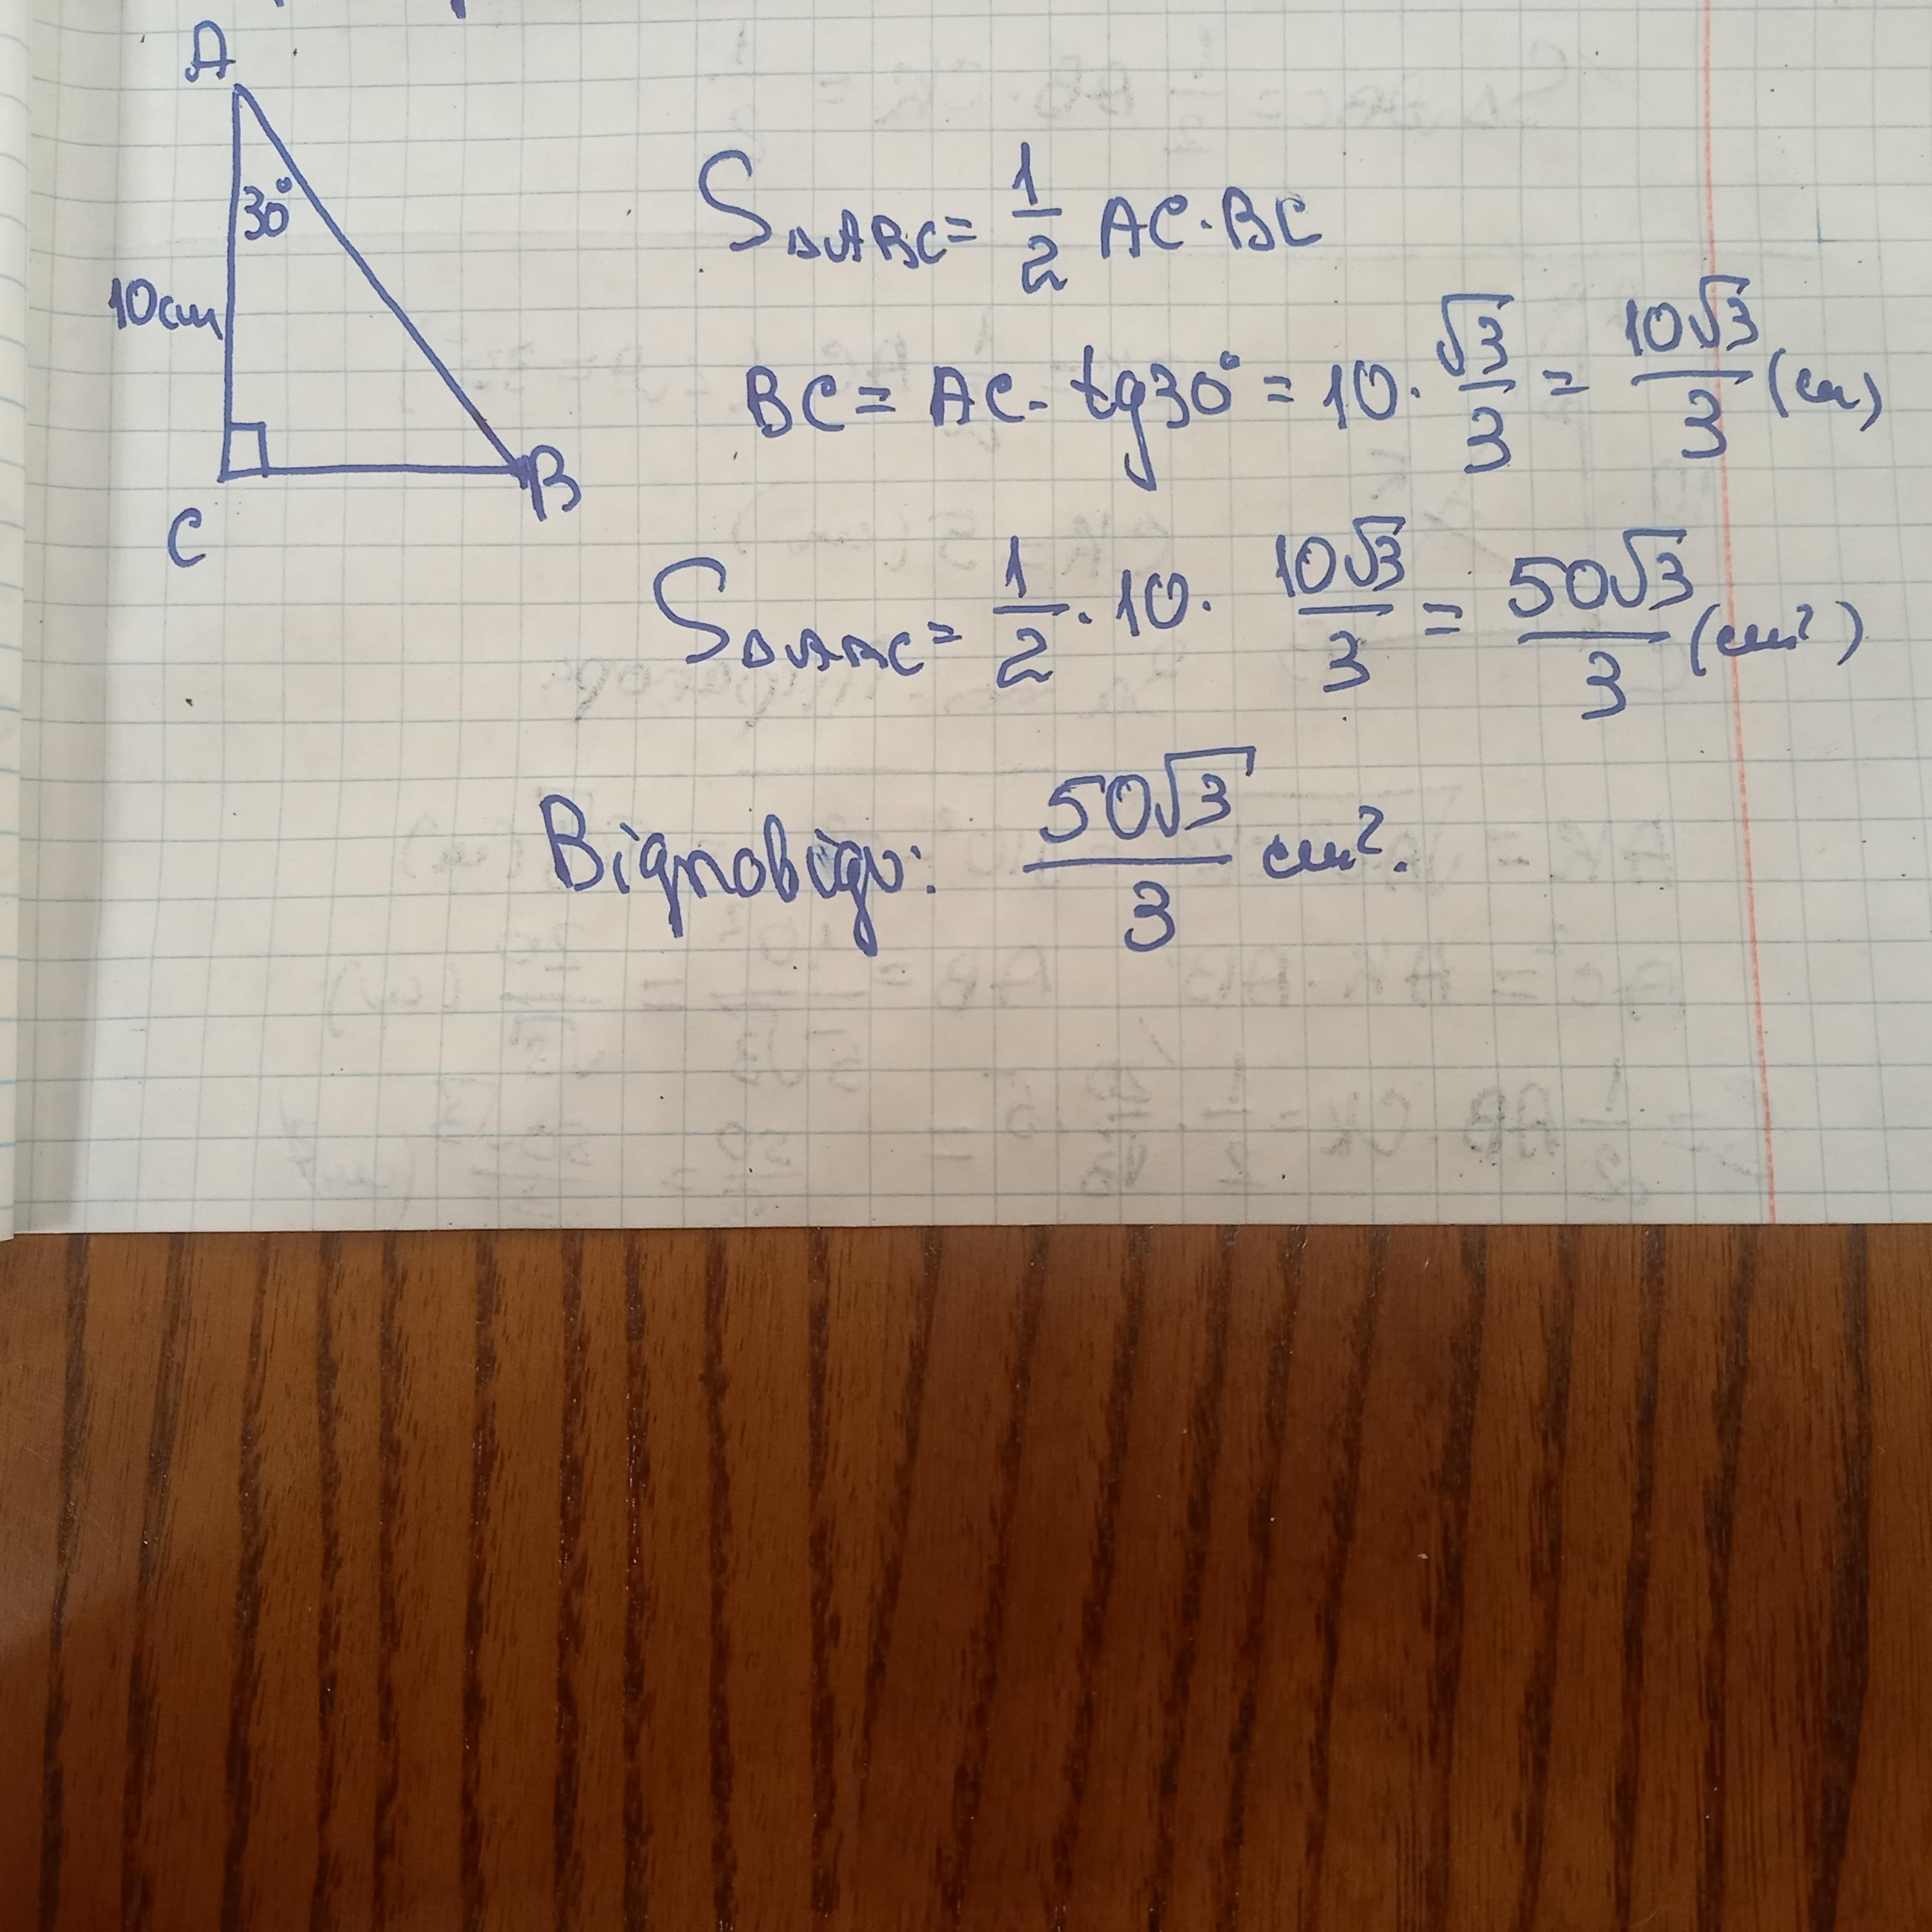 A
30°
10см
C
B
S△ABC = 1/2 AC · BC
BC = AC · tg30° = 10 · √3/3 = 10√3/3 (см)
S△ABC = 1/2 · 10 · 10√3/3 = 50√3/3 (см²)
Відповідь: 50√3/3 см².